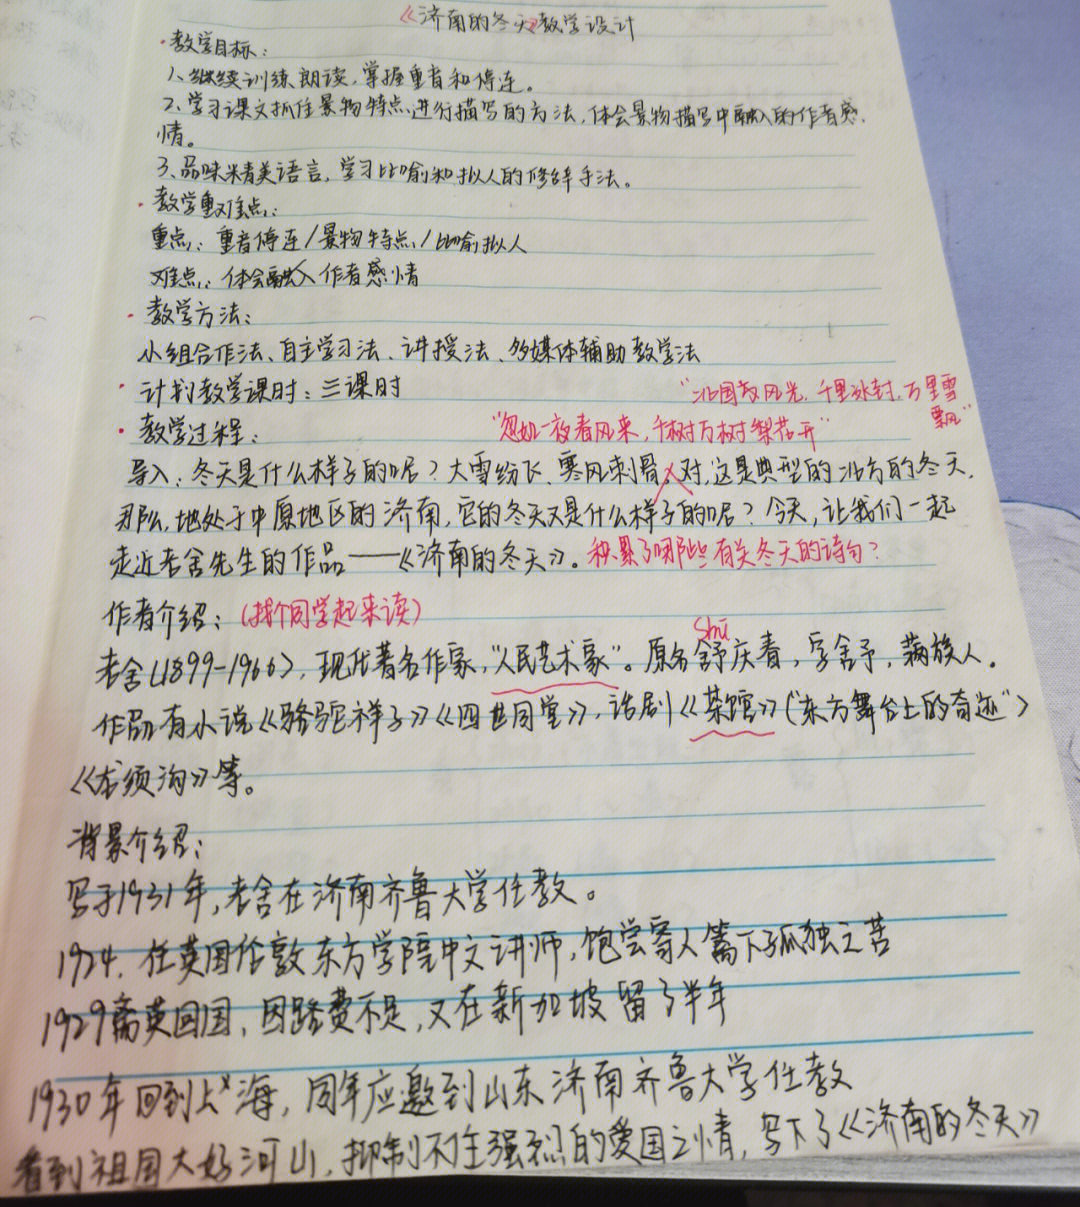 《济南的冬天》教学设计
·教学目标：
1、继续训练朗读，掌握重音和停连。
2、学习课文抓住景物特点进行描写的方法，体会景物描写中融入的作者感
情。
3、品味精美语言，学习比喻和拟人的修辞手法。
·教学重难点：
重点：重音停连/景物特点/比喻拟人
难点：体会融入作者感情
·教学方法：
小组合作法、自主学习法、讲授法、多媒体辅助教学法
·计划教学课时：三课时
"北国风光，千里冰封，万里雪
飘"
·教学过程：
"忽如一夜春风来，千树万树梨花开"
导入：冬天是什么样子的呢？大雪纷飞、寒风刺骨，对，这是典型的北方的冬天，
那么，地处于中原地区的济南，它的冬天又是什么样子的呢？今天，让我们一起
走近老舍先生的作品——《济南的冬天》。积累了哪些有关冬天的诗句？
作者介绍：（找个同学起来读）
shū
老舍（1899-1966），现代著名作家，"人民艺术家"。原名舒庆春，字舍予，满族人。
作品有小说《骆驼祥子》《四世同堂》，话剧《茶馆》（"东方舞台上的奇迹"）
《龙须沟》等。
背景介绍：
写于1931年，老舍在济南齐鲁大学任教。
1924，任英国伦敦东方学院中文讲师，饱尝寄人篱下孤独之苦
1929离英回国，因路费不足，又在新加坡留了半年
1930年回到上海，同年应邀到山东济南齐鲁大学任教
看到祖国大好河山，抑制不住强烈的爱国之情，写下了《济南的冬天》